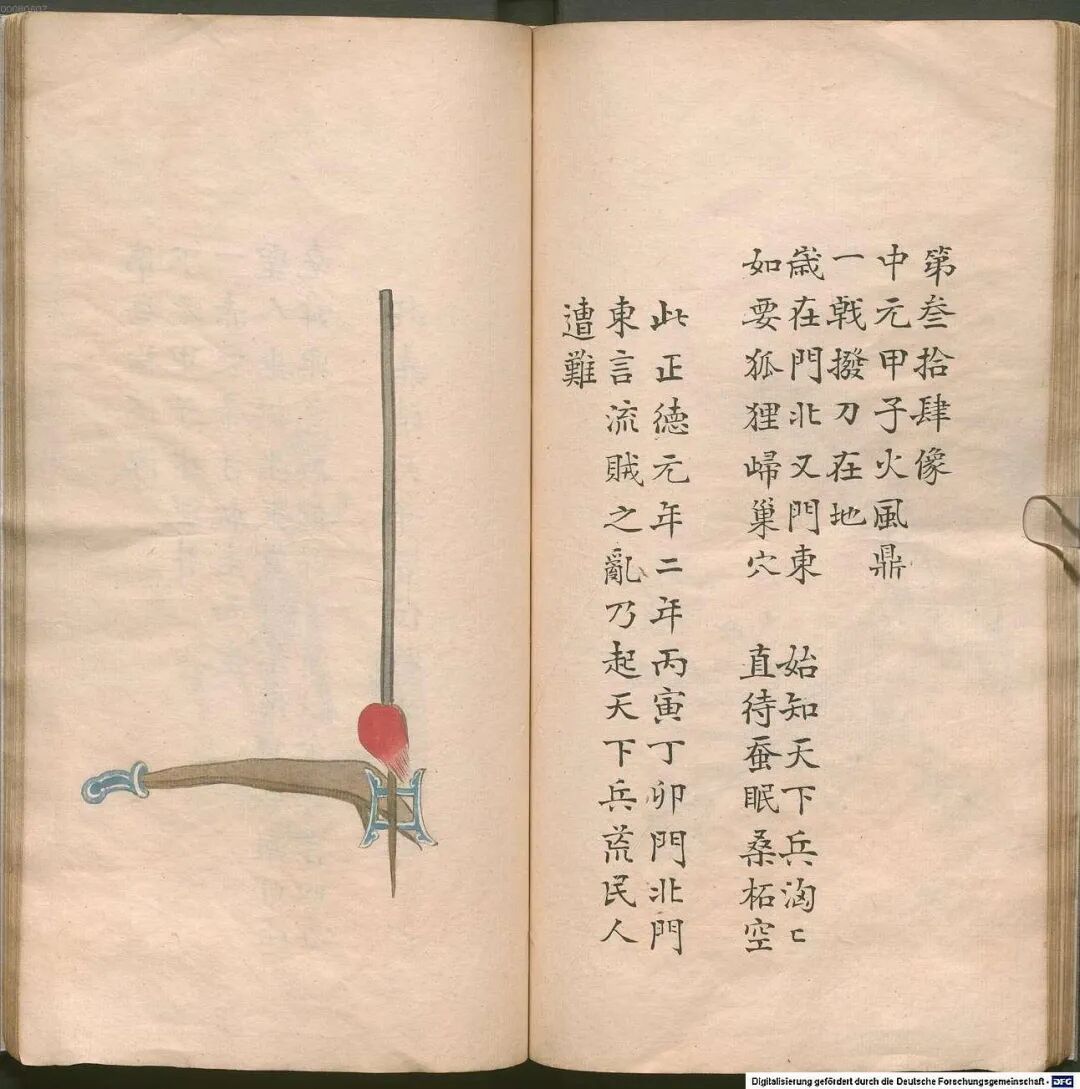 第叁拾肆像
中元甲子火風鼎
一戟撥刀在地
歲在門北又門東 始知天下兵洶〻
如要狐狸歸巢穴 直待蚕眠桑柘空
此正德元年二年丙寅丁卯門北門
東言流賊之亂乃起天下兵荒民人
遭難
00080607
Digitalisierung gefördert durch die Deutsche Forschungsgemeinschaft - DFG